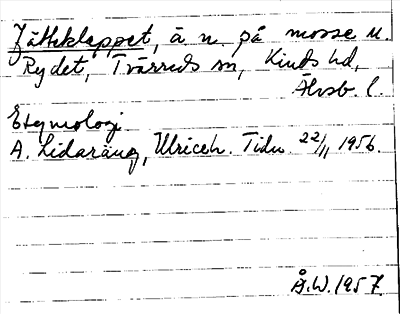 Jätteklappet, ä n. på mosse u.
Rydet, Tvärreds sn, Kinds hd,
Älvsb. l.
Etymologi.
A. Lidaräng, Ulriceh. Tidn. 22/11 1956.
Å.W. 1957.